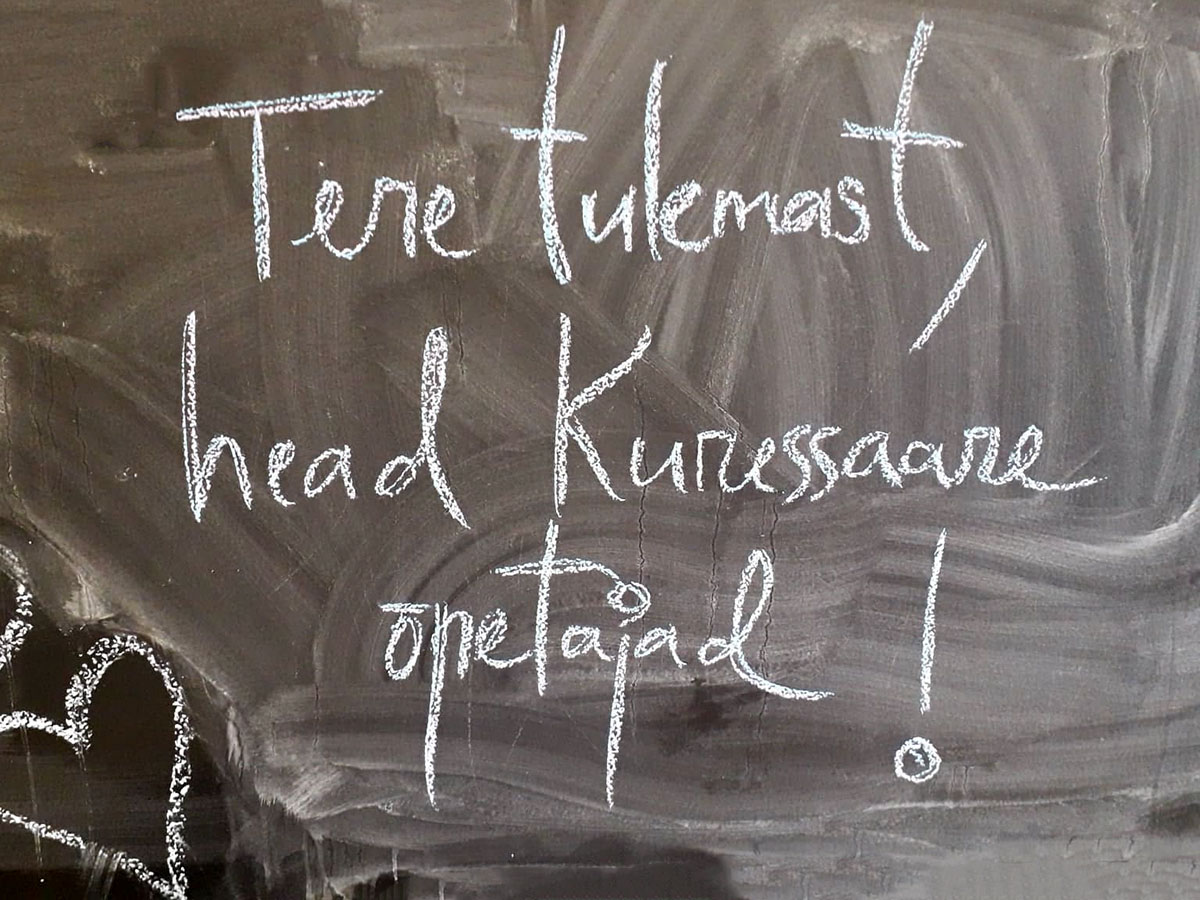 Tere tulemast,
head Kuressaare
õpetajad!